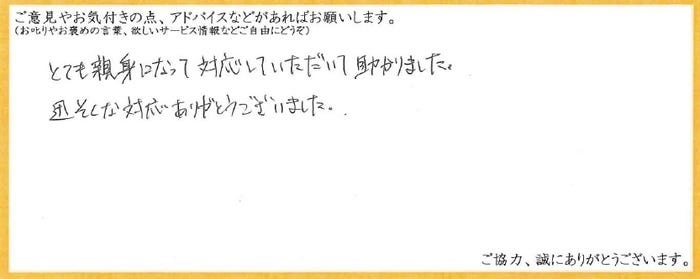 ご意見やお気付きの点、アドバイスなどがあればお願いします。
(お叱りやお褒めの言葉、欲しいサービス情報などご自由にどうぞ)
とても親身になって対応していただいて助かりました。
迅そくな対応ありがとうございました。
ご協力、誠にありがとうございます。